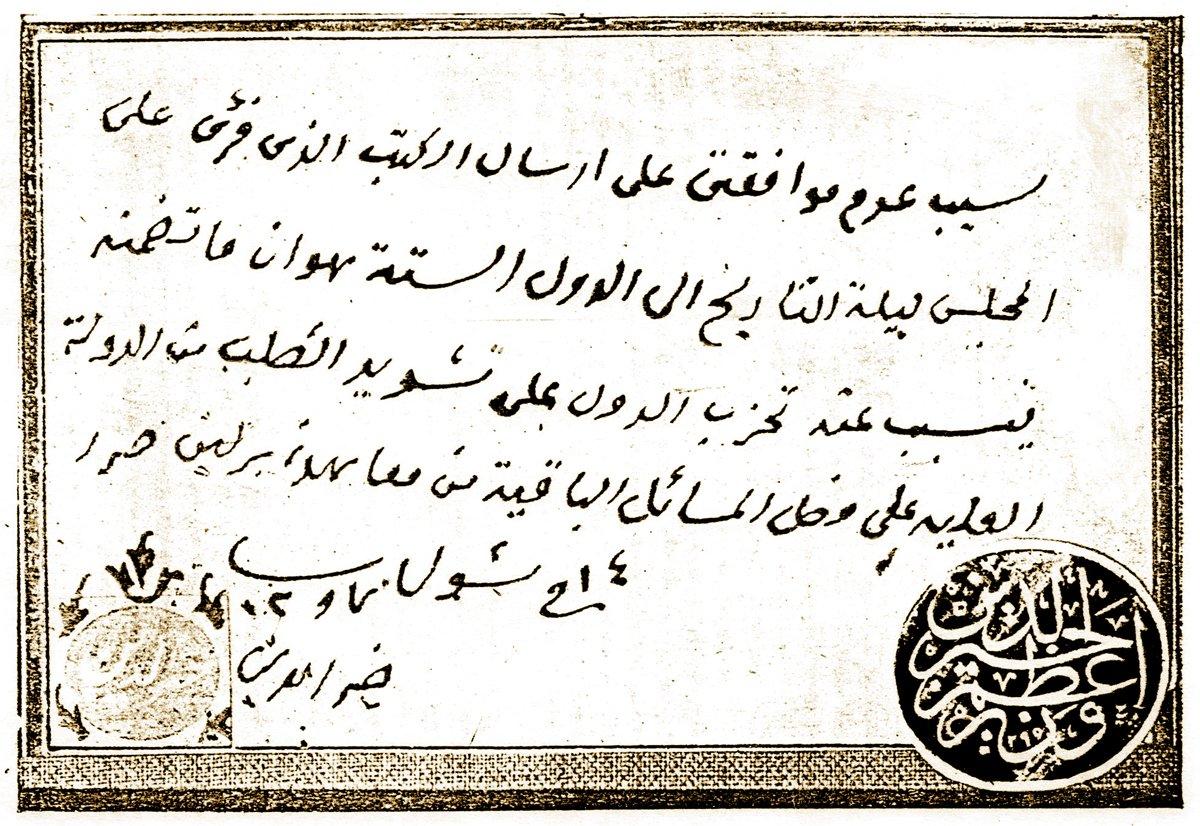 سبب عدم موافقتى على ارسال الكتب الذى قرئ على
المجلس ليلة التاريخ الى الدول الستة هو ان ما تضمنه
يتسبب عنه تحزب الدول على تشديد الطلب من الدولة
العلية على وصل المسائل الباقية من معاهدة برلين ضررا
١٤ شوال
خير الدين
خير الدين